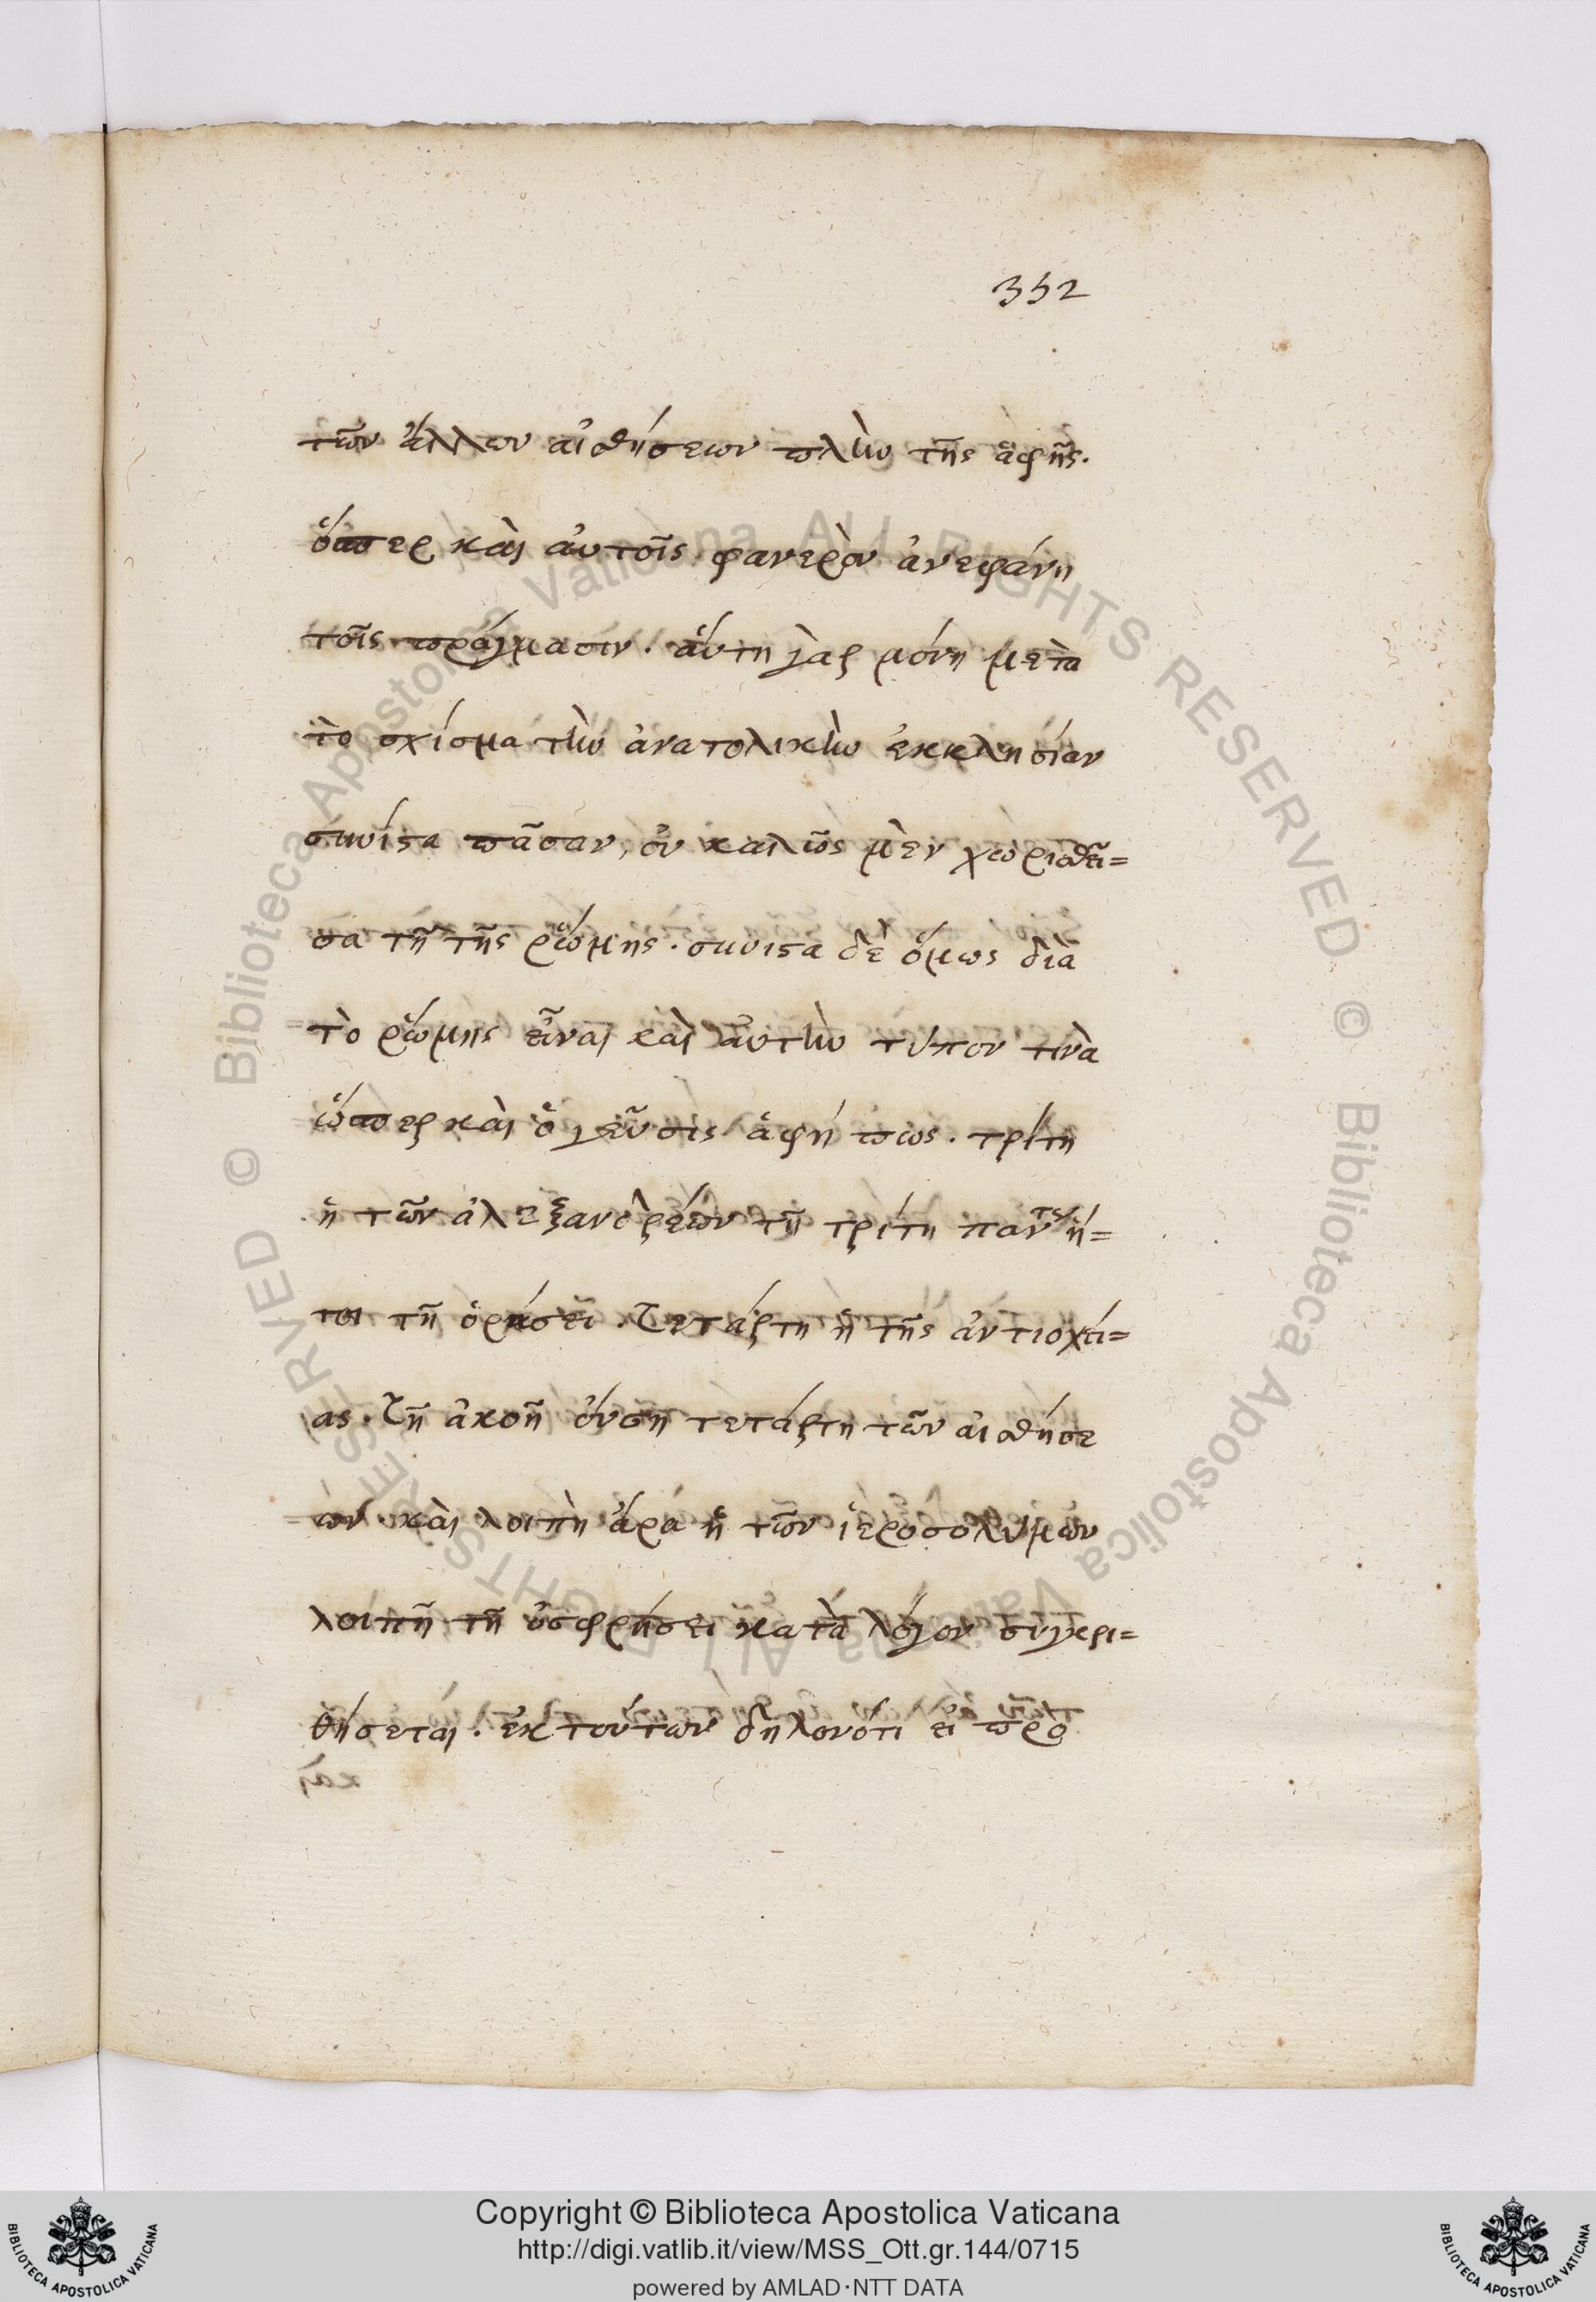 352
τῶν ἄλλων αἰσθήσεων πλὴν τῆς ἁφῆς.
ὅπερ καὶ αὐτοῖς φανερὸν ἀνεφάνη
τοῖς πράγμασιν. ἅυτη γὰρ μόνη μετὰ
τὸ σχίσμα τὴν ἀνατολικὴν ἐκκλησίαν
συνίστα πᾶσαν, οὐ καλῶς μὲν χωρισθεῖ=
σα τῇ τῆς ῥώμης. συνιστα δὲ ὅμως διὰ
τὸ ῥώμης εἶναι καὶ ἀυτὴν τύπον τινὰ
ὥσπερ καὶ ὁ γεῦσις ἁφή πως. τρίτη
ἡ τῶν ἀλεξανδρέων τῇ τρίτῃ πάντως ἤ=
τοι τῇ ὁράσει. τετάρτη ἡ τῆς ἀντιοχεί=
ας. τῇ ἀκοῇ ὀύσῃ τετάρτη τῶν αἰσθήσε
ων. καὶ λοιπὴ ἄρα ἡ τῶν ἱεροσολύμων
λοιπῇ τῇ ὀσφρήσει κατὰ λόγον συγκρι=
θήσεται. ἐκ τούτων δηλονότι εἰ προ
Copyright © Biblioteca Apostolica Vaticana
http://digi.vatlib.it/view/MSS_Ott.gr.144/0715
powered by AMLAD·NTT DATA
© Biblioteca Apostolica Vaticana ALL RIGHTS RESERVED © Biblioteca Apostolica Vaticana ALL RIGHTS RESERVED
BIBLIOTECA APOSTOLICA VATICANA
BIBLIOTECA APOSTOLICA VATICANA